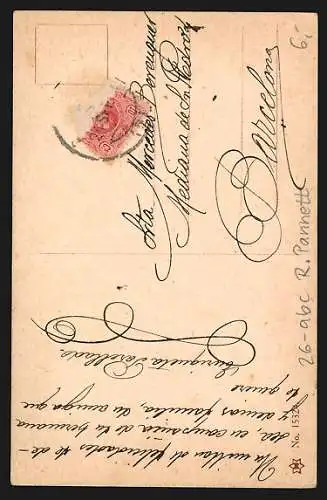 Un millon de felicidades te de-
sea, en compañia de tu hermana
y demas familia, tu amiga que
te quiere
Enriqueta Parellada
Srta Mercedes Berenguer
Mediana de Sn Pedro
Barcelona
6,-
26-abc R. Pannett
No. 1532